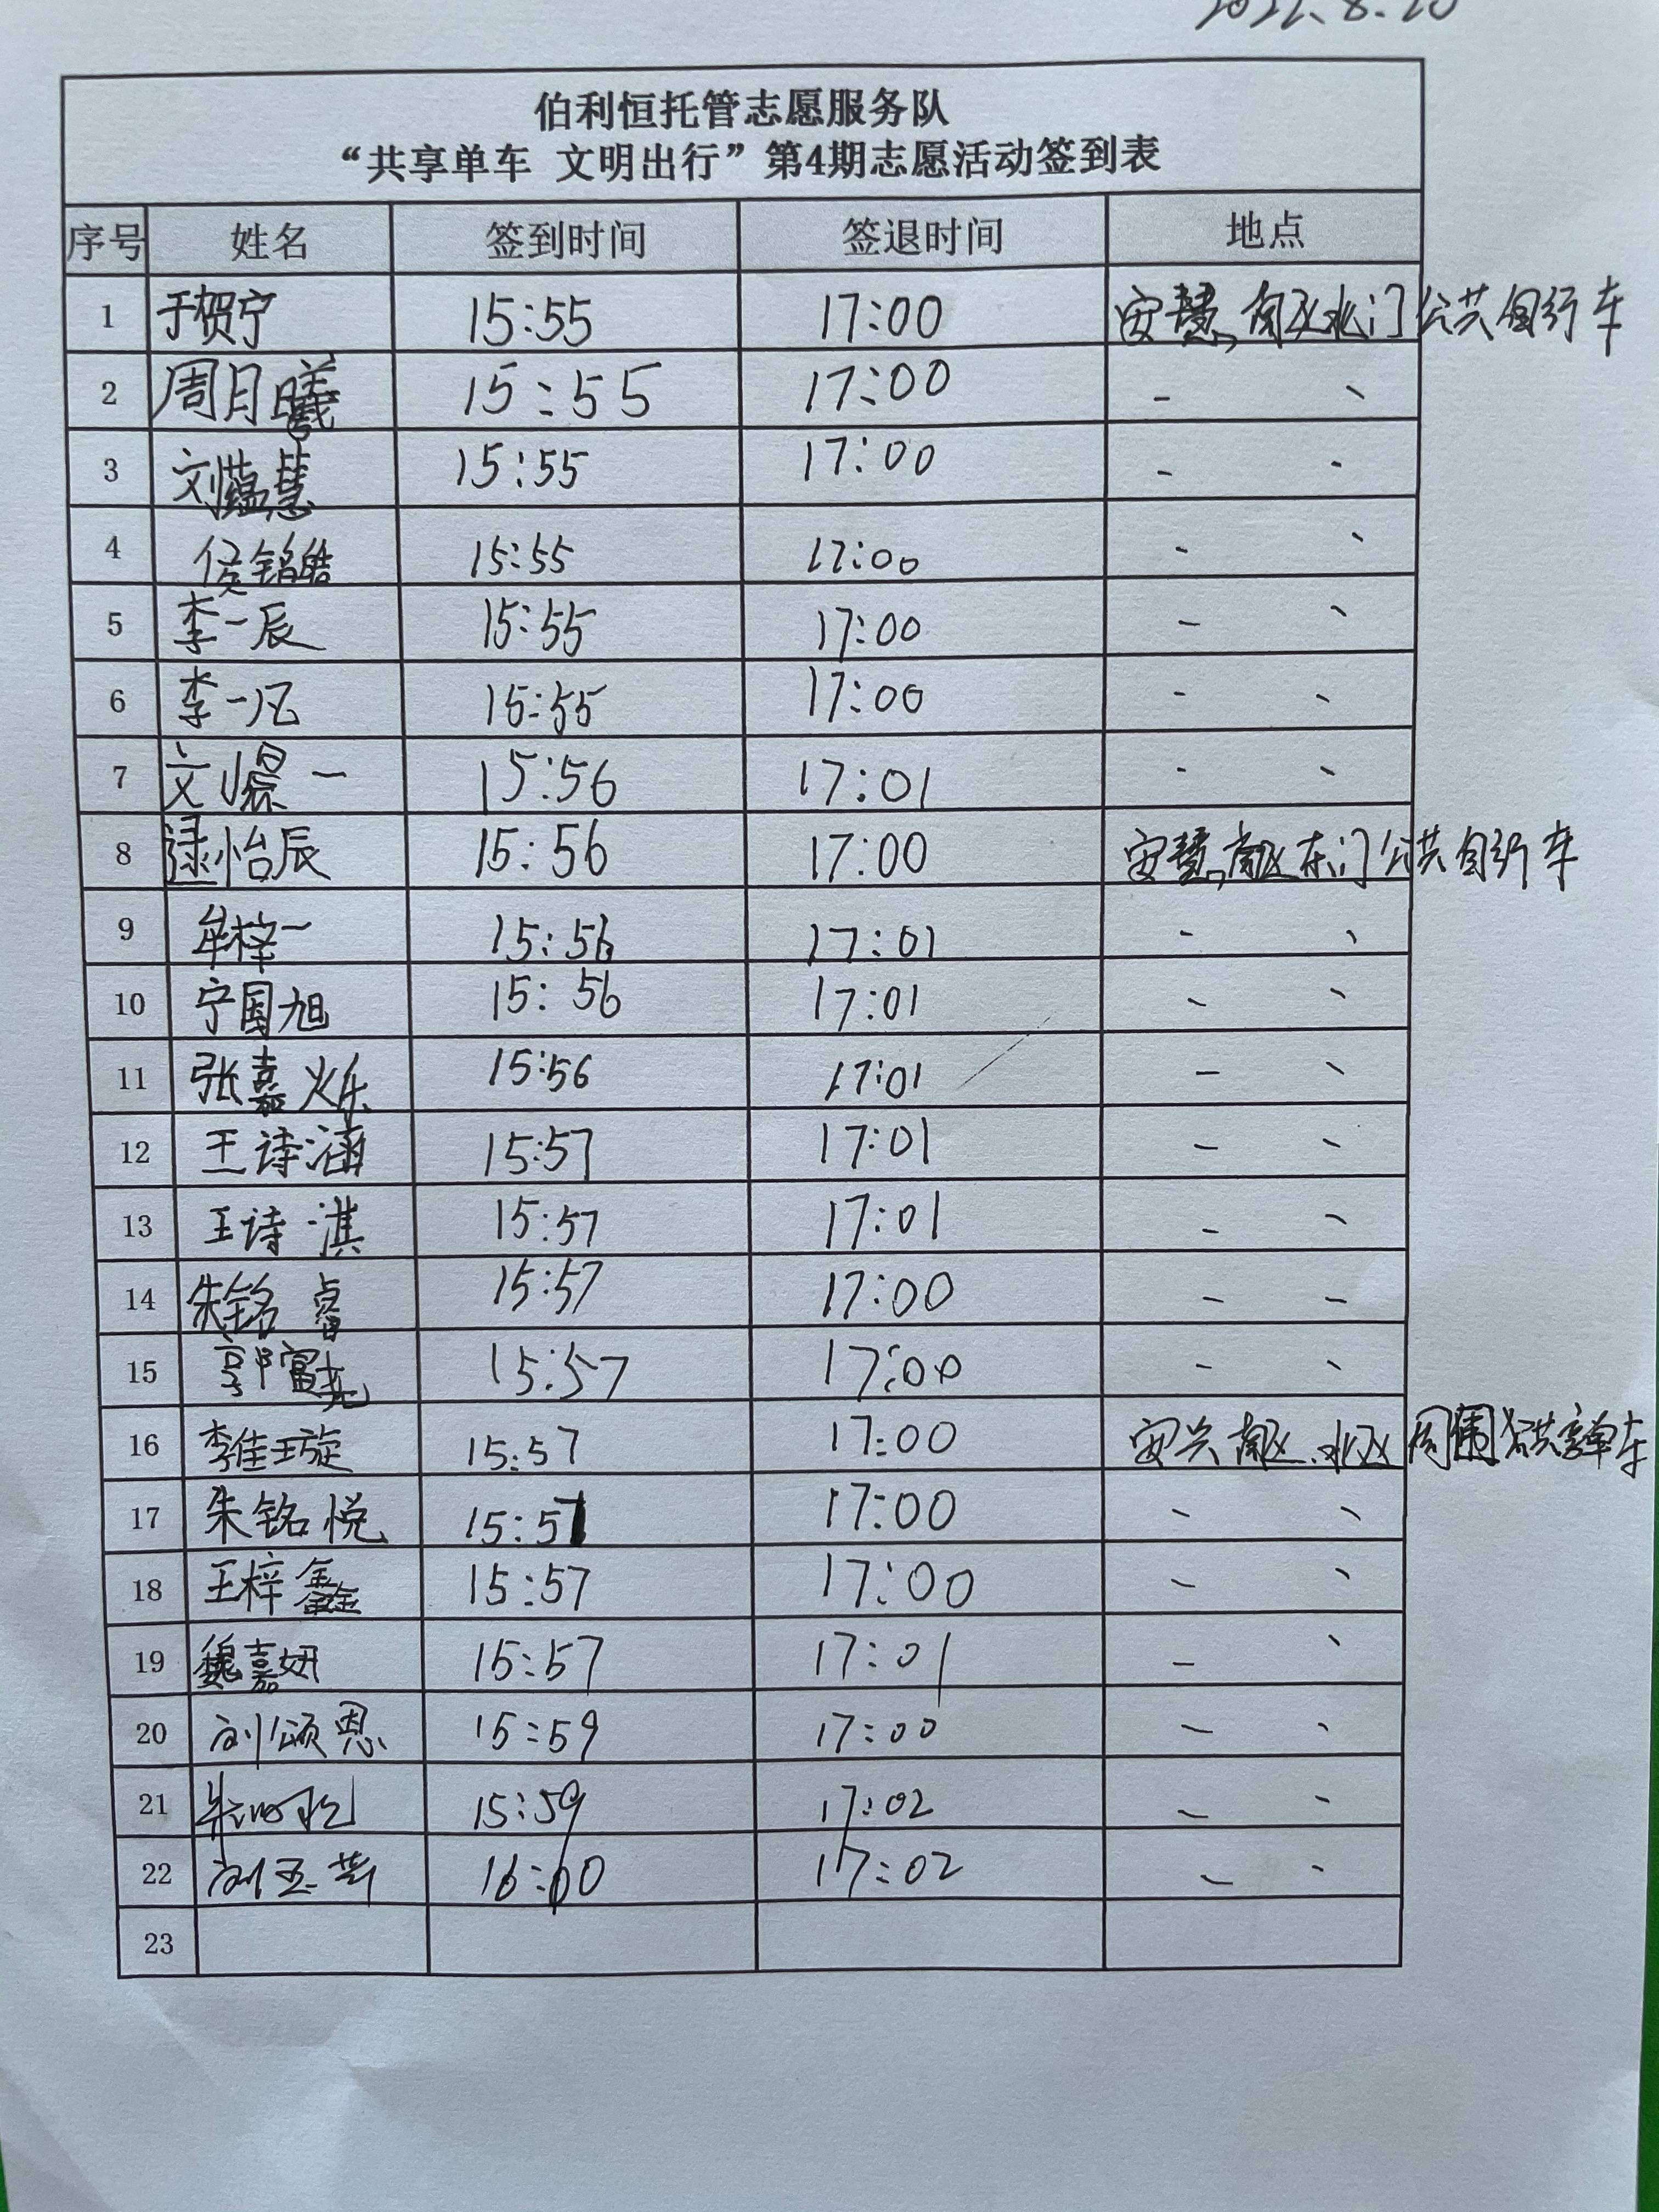 2022.8.20
伯利恒托管志愿服务队
“共享单车 文明出行”第4期志愿活动签到表
序号 姓名 签到时间 签退时间 地点
1 于贺宁 15:55 17:00 安慧南区北门公共自行车
2 周月曦 15:55 17:00 - 、
3 刘蕴慧 15:55 17:00 - -
4 侯铭皓 15:55 17:00 - 、
5 李一辰 15:55 17:00 - 、
6 李一凡 15:55 17:00 - 、
7 刘璟一 15:56 17:01 - 、
8 逯怡辰 15:56 17:00 安慧南区东门公共自行车
9 牟梓一 15:56 17:01 - 、
10 宁国旭 15:56 17:01 - 、
11 张嘉烁 15:56 17:01 - 、
12 王诗涵 15:57 17:01 - 、
13 王诗淇 15:57 17:01 - 、
14 朱铭睿 15:57 17:00 - -
15 郭富尧 15:57 17:00 - 、
16 李佳璇 15:57 17:00 安兴南区、北区周围公共享单车
17 朱铭悦 15:57 17:00 - 、
18 王梓鑫 15:57 17:00 - 、
19 魏嘉妍 15:57 17:01 - 、
20 刘颂恩 15:59 17:00 - 、
21 15:59 17:02 - 、
22 刘玉芳 16:00 17:02 - 、
23